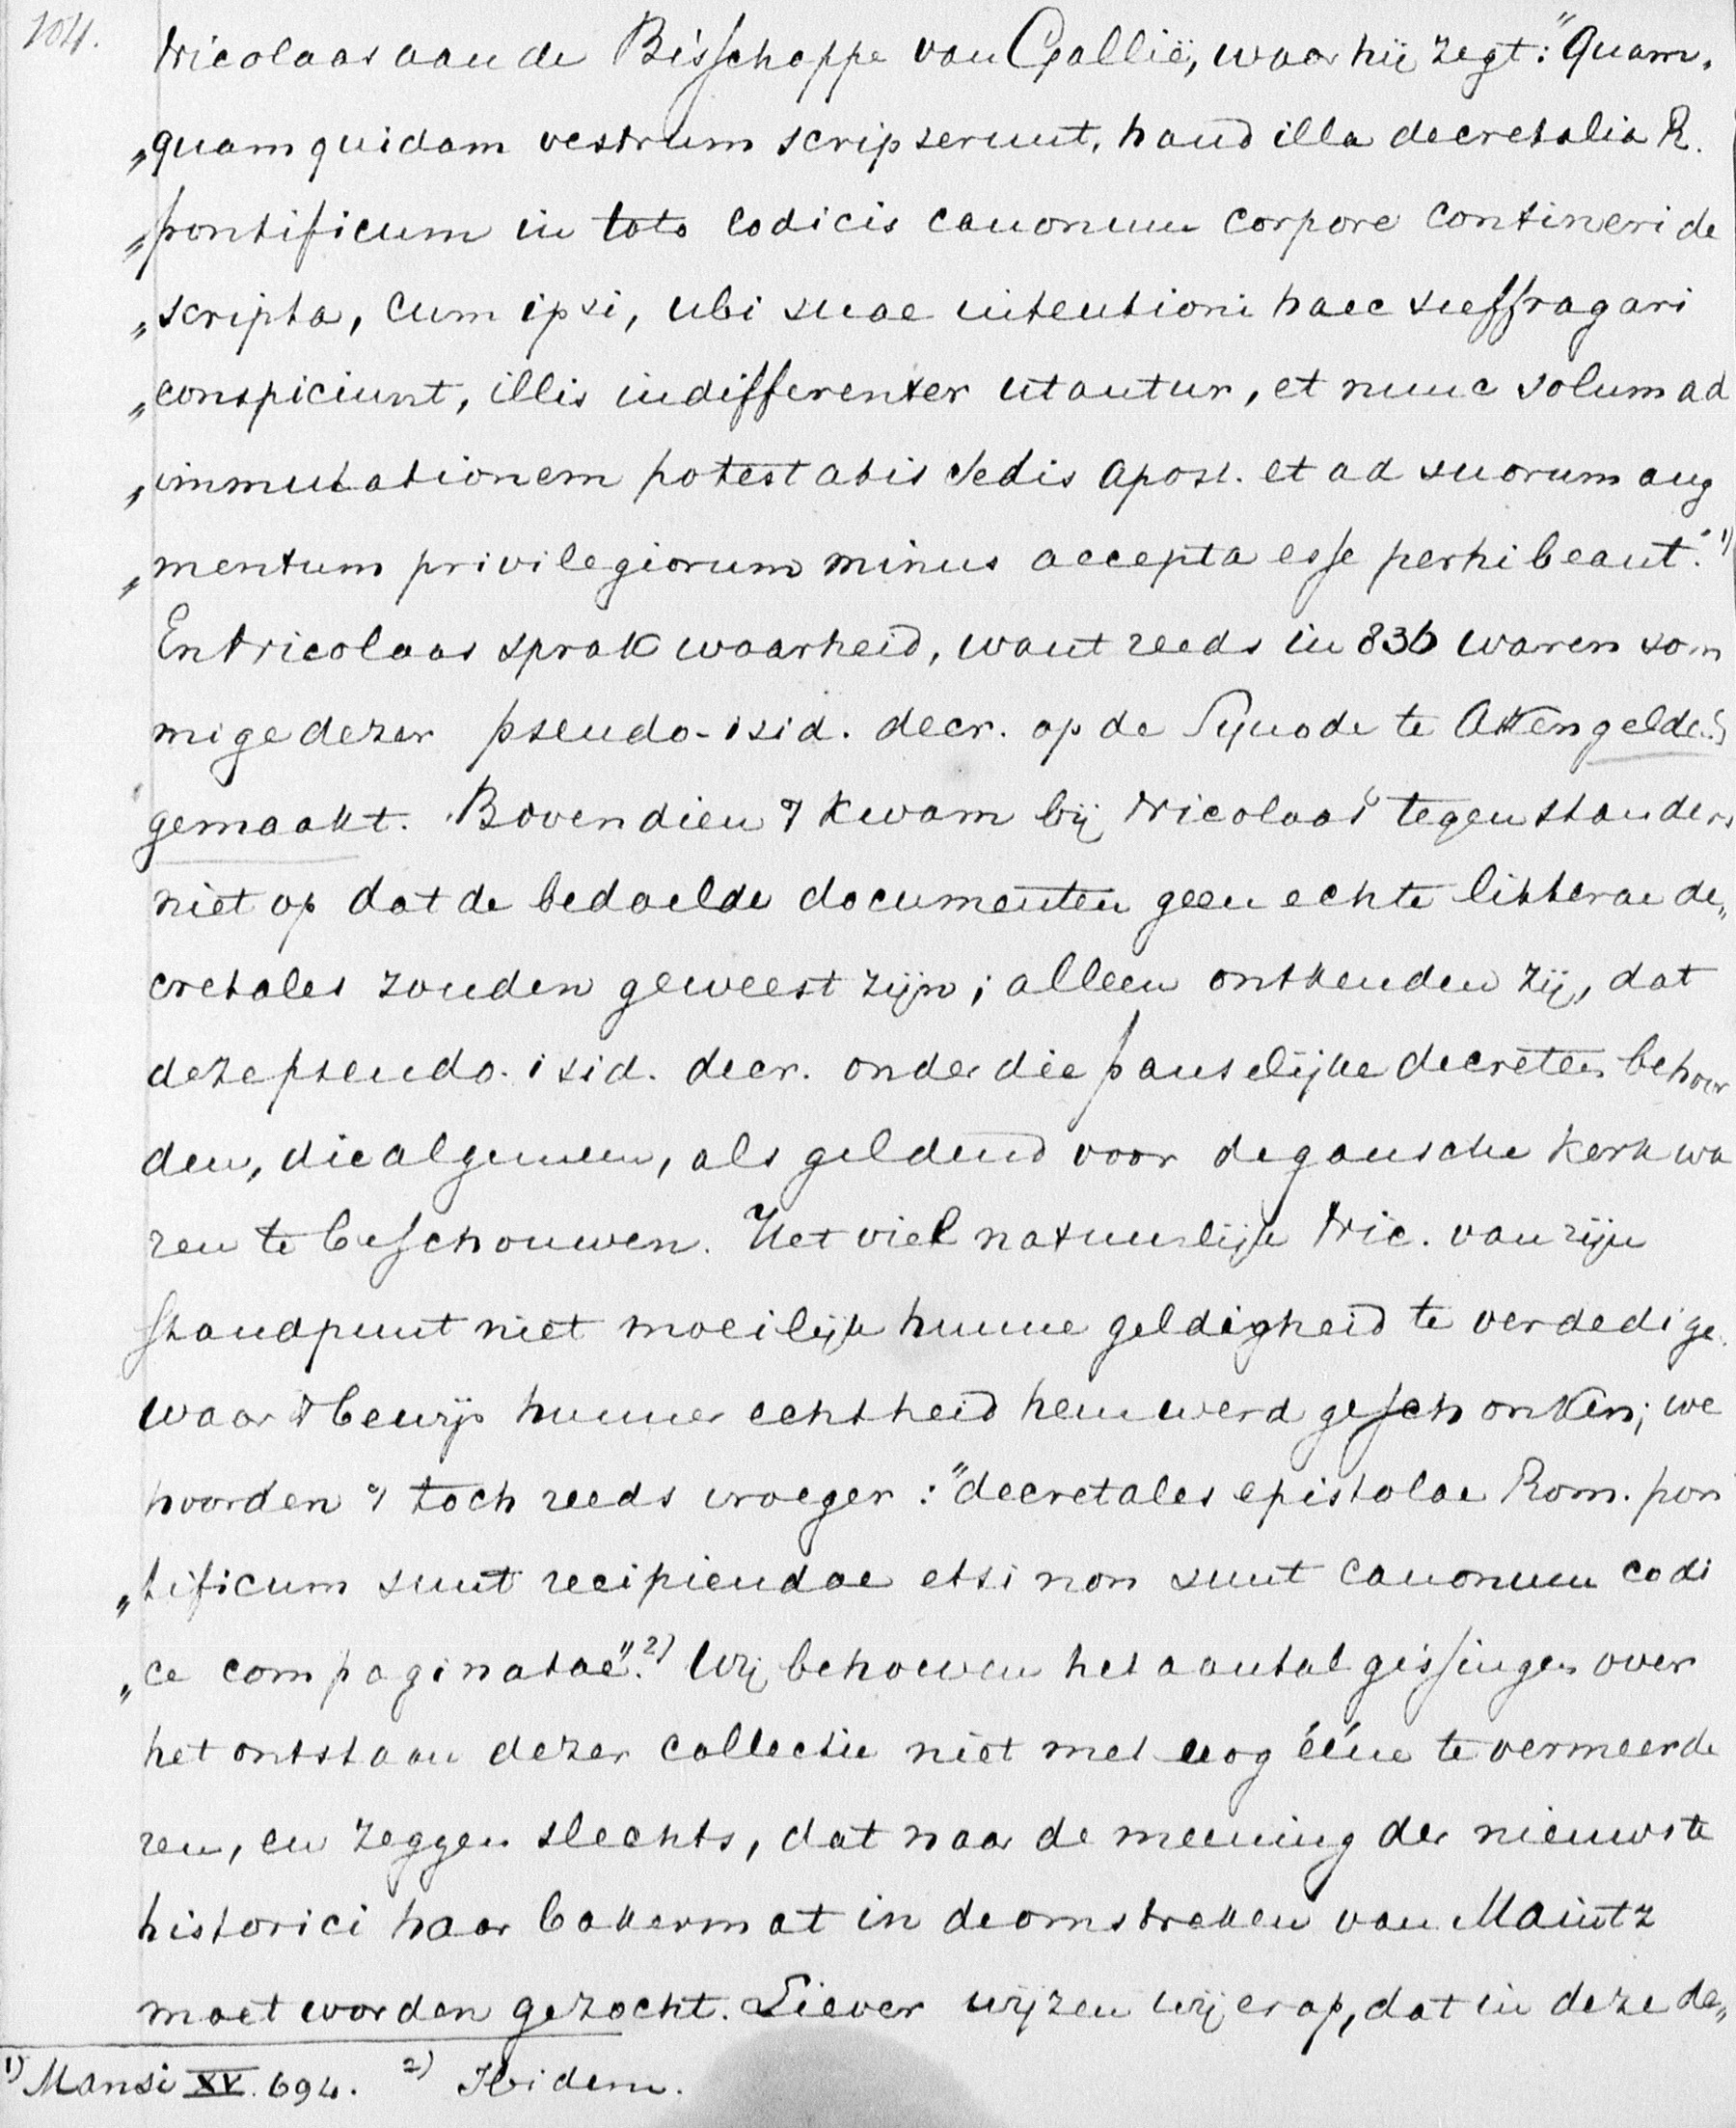 104.
Nicolaas aan de Bisschoppe van Gallië, waar hij zegt: "Quam,
„quam quidam vestrum scripserunt, haud illa decretalia R.
„pontificum in toto codicis canonum corpore contineri de
„scripta, cum ipsi, ubi suae intentioni haec suffragari
„conspiciunt, illis indifferenter utantur, et nunc solum ad
„immutationem potestatis Sedis Apost. et ad suorum aug
„mentum privilegiorum minus accepta esse perhibeant." 1)
En Nicolaas sprak waarheid, want reeds in 836 waren som
mige dezer pseudo-isid. decr. op de Synode te Aken geldend
gemaakt. Bovendien 't kwam bij Nicolaas' tegenstanders
niet op dat de bedoelde documenten geen echte litterae de„
cretales zouden geweest zijn; alleen ontkenden zij, dat
deze pseudo-isid. decr. onder die pauselijke decreten behoor
den, die algemeen, als geldend voor de gansche Kerk wa
ren te beschouwen. Het viel natuurlijk Nic. van zijn
standpunt niet moeilijk hunne geldigheid te verdedige
waar 't bewijs hunner echtheid hem werd geschonken; we
hoorden 't toch reeds vroeger: "decretales epistolae Rom. pon
„tificum sunt recipiendae etsi non sunt canonum codi
„ce compaginatae". 2) Wij behoeven het aantal gissingen over
het ontstaan dezer collectie niet met nog ééne te vermeerde
ren, en zeggen slechts, dat naar de meening der nieuwste
historici haar bakermat in de omstreken van Maintz
moet worden gezocht. Liever wijzen wij er op, dat in deze de„
1) Mansi XV. 694. 2) Ibidem.